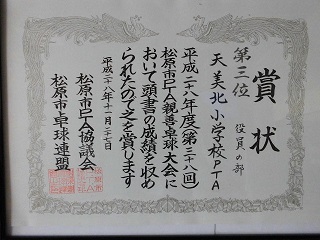 賞状
役員の部
第三位
天美北小学校PTA
平成二八年度(第三十八回)
松原市PTA親善卓球大会に
おいて頭書の成績を収め
られたので之を賞します
平成二十八年十一月二十七日
松原市PTA協議会
松原市卓球連盟